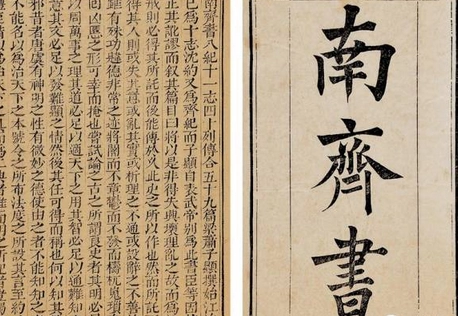 南齊書
南齊書八紀十一志四十列傳合五十九篇梁蕭子顯撰始江
已為十志沈約又為齊紀而子顯自表武帝別為此書臣等因
正其訛謬而敘其篇目曰將以是非得失興壞理亂之故而為
戒則必得其所託而後能傳於久此史之所以作也然而所託
得其人則或失其意或亂其實或析理之不通或設辭之不善
雖有殊功韙德非常之迹將闇而不章鬱而不發而檮杌嵬瑣
回凶慝之形可幸而揜也嘗試論之古之所謂良史者其明必
以周萬事之理其道必足以適天下之用其智必足以通難知
意其文必足以發難顯之情然後其任可得而稱也何以知其
邪昔者唐虞有神明之性有微妙之德使由之者不能知知之
不能名以為治天下之本號令之所布法度之所設其言至約